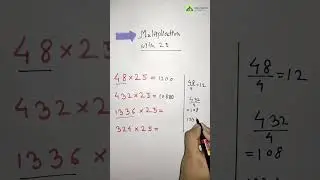 Multiplication
with 25
48 × 25 = 1200
432 × 25 = 10800
1336 × 25 =
324 × 25 =
48/4 = 12
432/4
= 108
133
48/4 = 12
432/4
= 108